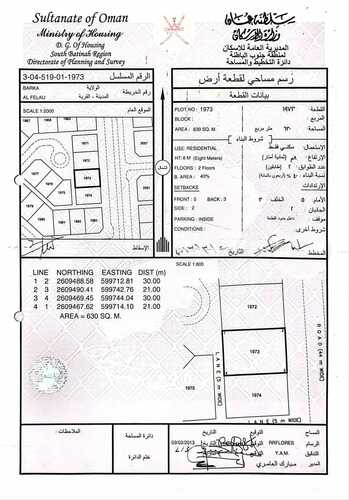 Sultanate of Oman
Ministry of Housing
D. G. Of Housing
South Batinah Region
Directorate of Planning and Survey
سلطنة عمان
وزارة الإسكان
المديرية العامة للاسكان
لمنطقة جنوب الباطنة
دائرة التخطيط والمساحة
3-04-519-01-1973 الرقم المسلسل
رسم مساحي لقطعة أرض
BARKA الولاية
رقم الخريطة
AL FELAIJ المدينة - القرية
SCALE 1:2000 الموقع العام
بيانات القطعة
PLOT.NO : 1973 ١٩٧٣ القطعة
BLOCK :
AREA : 630 SQ. M. ٦٣٠ متر مربع
شروط البناء
USE: RESIDENTIAL سكني فقط الاستعمال
HT:8 M (Eight Meters) الارتفاع
FLOORS : 2 Floors عدد الطوابق
B. AREA : 40% نسبة البناء
SETBACKS الارتدادات
FRONT : 5 BACK : 3 الخلف ٣ الأمام ٥
SIDES : 2 الجانبان ٢
PARKING : INSIDE موقف
شروط أخرى
1971
1972
1973
1974
الإسقاط
التاريخ
المخطط
SCALE 1:600
LINE NORTHING EASTING DIST (m)
1 2 2609488.58 599712.81 30.00
2 3 2609490.41 599742.76 21.00
3 4 2609469.45 599744.04 30.00
4 1 2609467.62 599714.10 21.00
AREA = 630 SQ.M.
1972
1973
1974
LANE (5 m WIDE)
ROAD (44 m WIDE)
LANE (5 m WIDE)
الملاحظات:
دائرة المساحة
ختم الدائرة
المساح
RRFLORES التوقيع
03/02/2013 التاريخ
الرسام
Y.A.M. التوقيع
التاريخ
المدير مبارك العامري